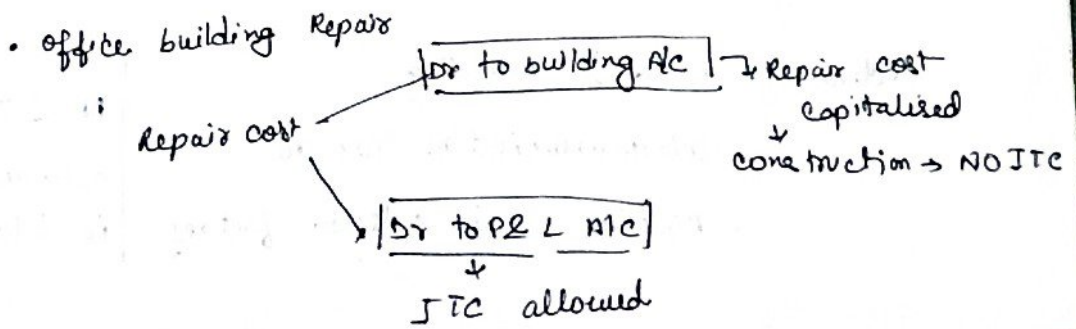 • office building Repair
Dr to building A/c → Repair cost
capitalised
↓
construction → NO ITC
: Repair cost
Dr to P& L A/c
↓
ITC allowed